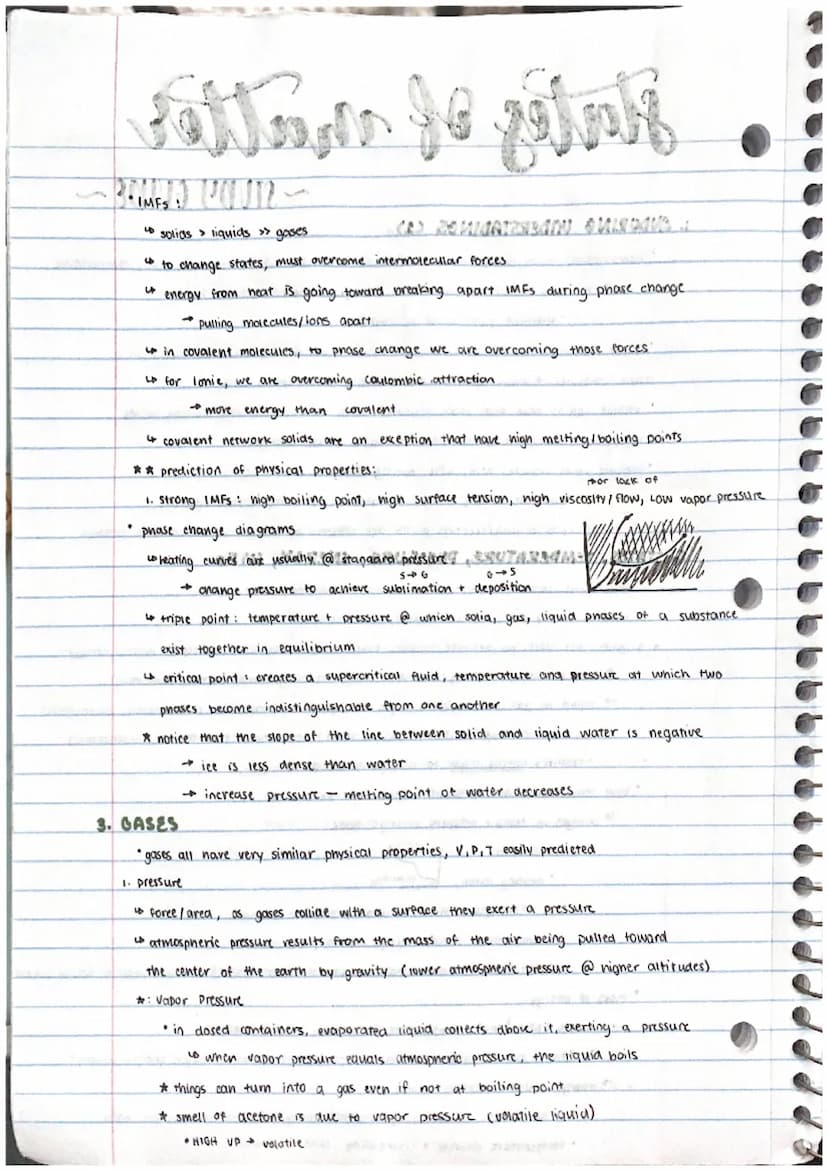 states of matter
STUDY GUIDE
1. ENDURING UNDERSTANDINGS (A)
• IMFs :
↳ solids > liquids >> gases
↳ to change states, must overcome intermolecular forces
↳ energy from heat is going toward breaking apart IMFs during phase change
→ pulling molecules/ions apart
↳ in covalent molecules, to phase change we are overcoming those forces
↳ for Ionic, we are overcoming coulombic attraction
→ more energy than covalent
↳ covalent network solids are an exception that have high melting/boiling points
** prediction of physical properties:
→or lack of
1. strong IMFs : high boiling point, high surface tension, high viscosity/flow, LOW vapor pressure
• phase change diagrams
↳ heating curves are usually @ standard pressure
S→G G→S
→ change pressure to achieve sublimation + deposition
↳ triple point : temperature + pressure @ which solid, gas, liquid phases of a substance
exist together in equilibrium
↳ critical point : creates a supercritical fluid, temperature and pressure at which two
phases become indistinguishable from one another
* notice that the slope of the line between solid and liquid water is negative
→ ice is less dense than water
→ increase pressure — melting point of water decreases
3. GASES
• gases all have very similar physical properties, V,P,T easily predicted
1. pressure
↳ force/area, as gases collide with a surface they exert a pressure
↳ atmospheric pressure results from the mass of the air being pulled toward
the center of the earth by gravity (lower atmospheric pressure @ higher altitudes)
*: Vapor Pressure
• in closed containers, evaporated liquid collects above it, exerting a pressure
↳ when vapor pressure equals atmospheric pressure, the liquid boils
* things can turn into a gas even if not at boiling point
* smell of acetone is due to vapor pressure (volatile liquid)
• HIGH VP → volatile